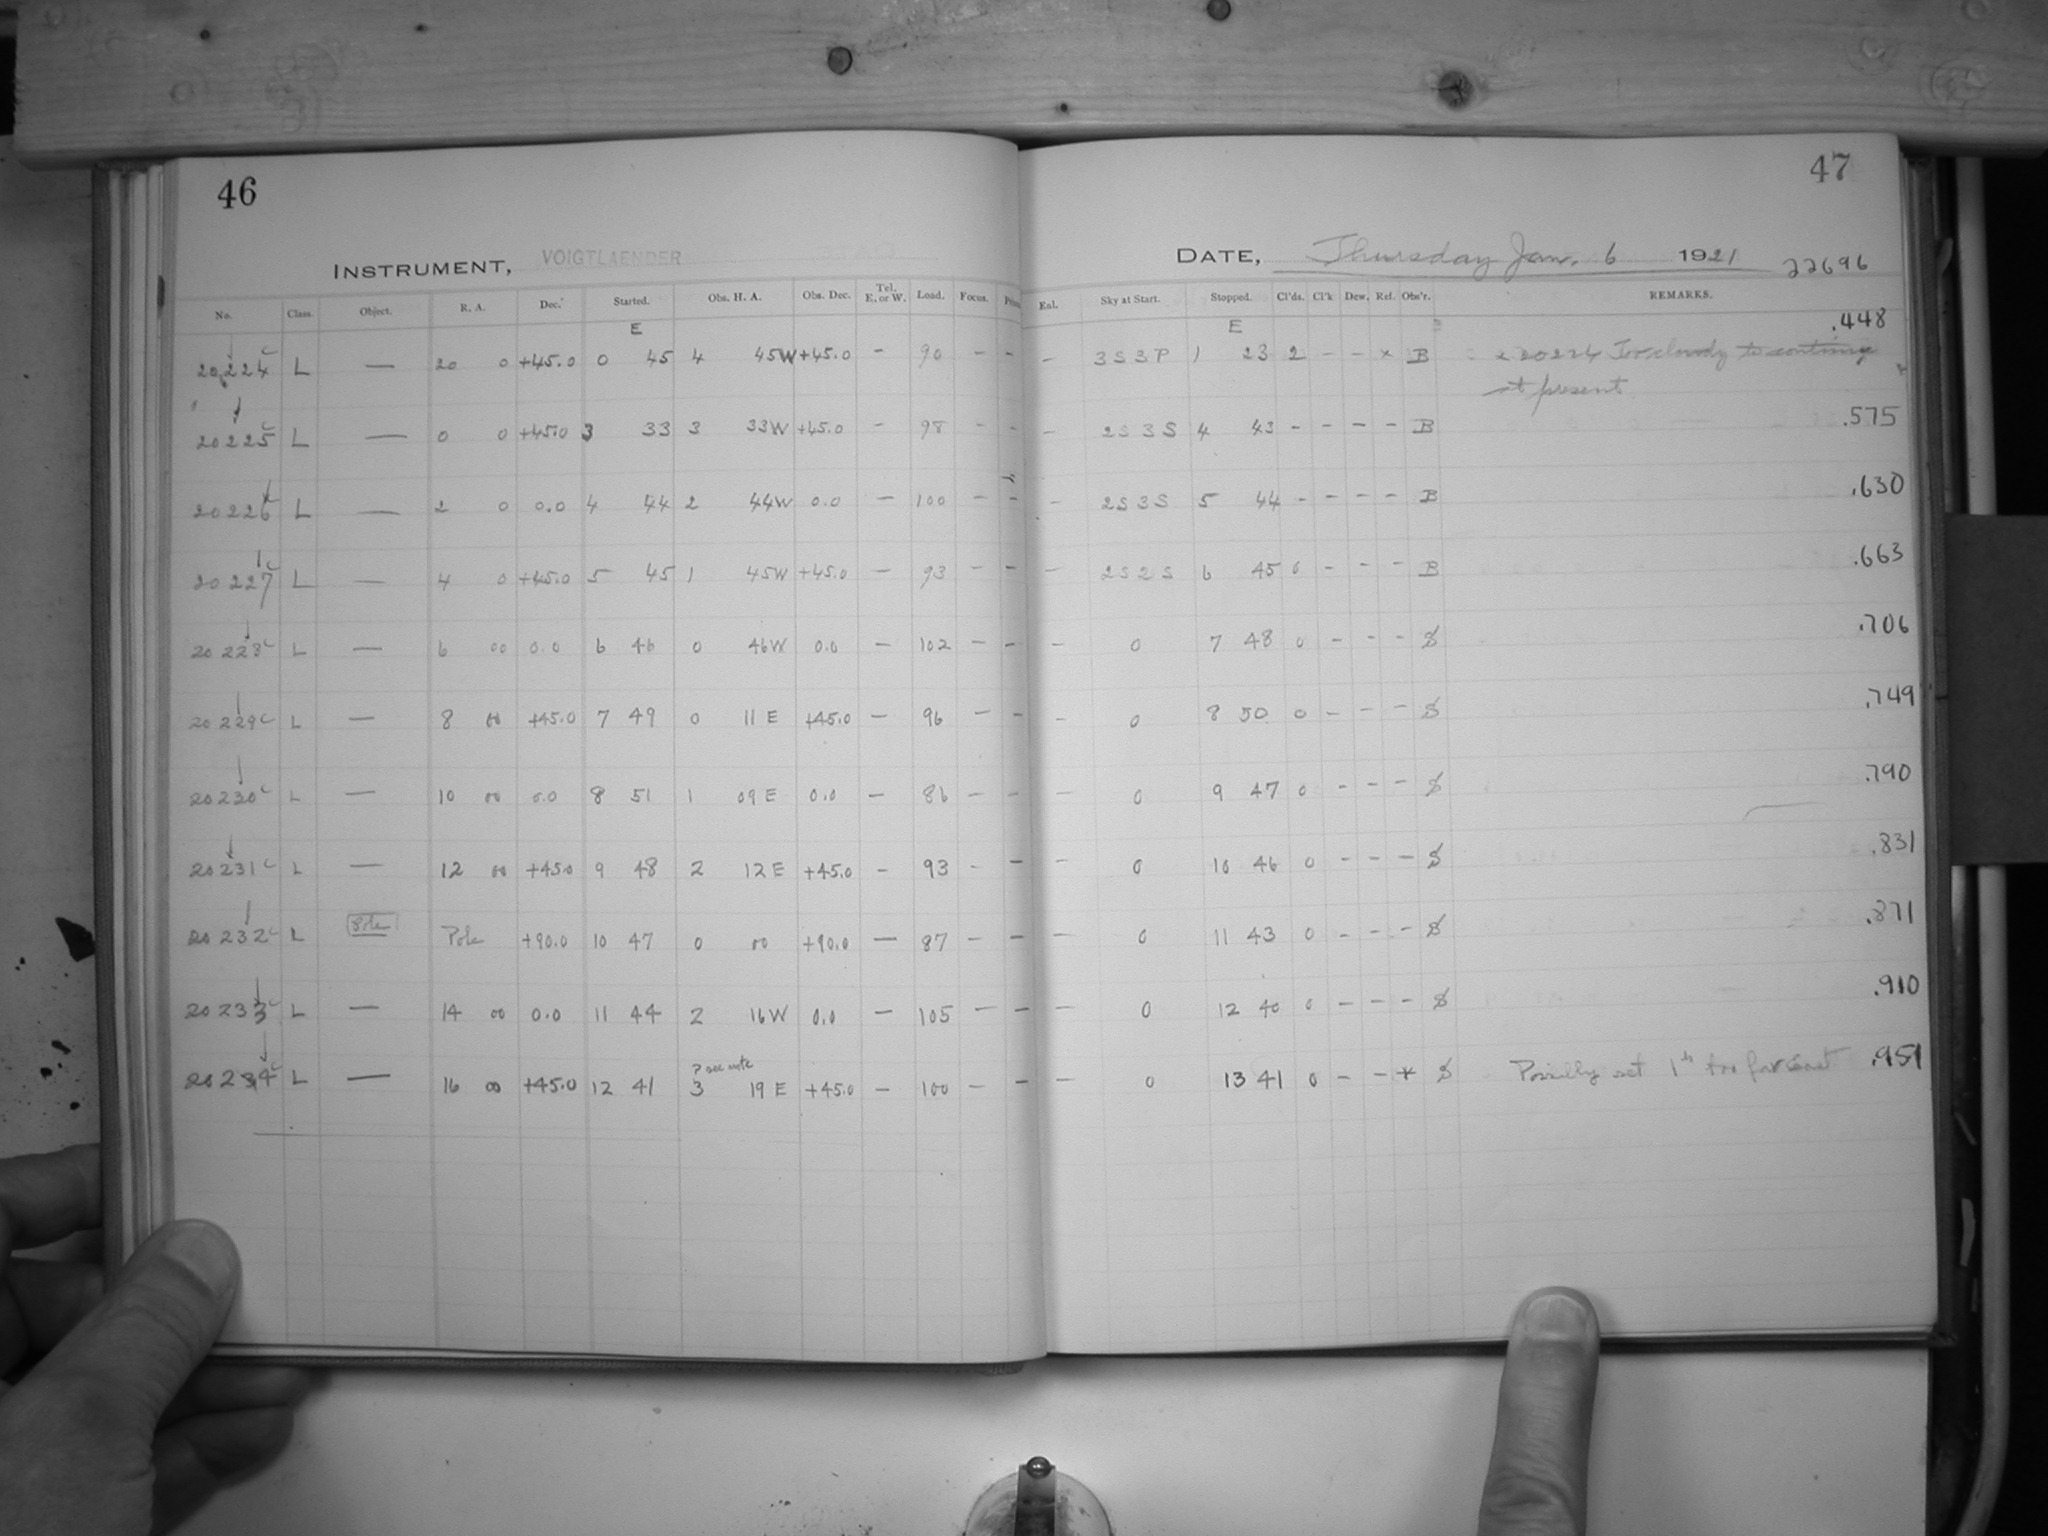 46
47
INSTRUMENT, VOIGTLAENDER
DATE, Thursday Jan. 6 1921 22696
No. Class. Object. R. A. Dec. Started. Obs. H. A. Obs. Dec. Tel. E. or W. Load. Focus. Enl. Sky at Start. Stopped. Cl'ds. Cl'k Dew. Ref. Obs'r. REMARKS.
E E .448
20224 c L — 20 0 +45.0 0 45 4 45W +45.0 - 90 - - - 3S3P 1 23 2 - - x B 20224 Too cloudy to continue
at present
20225 c L — 0 0 +45.0 3 33 3 33W +45.0 - 98 - - - 2S3S 4 43 - - - - B .575
20226 L — 2 0 0.0 4 44 2 44W 0.0 - 100 - - - 2S3S 5 44 - - - - B .630
20227 c L — 4 0 +45.0 5 45 1 45W +45.0 - 93 - - - 2S2S 6 45 0 - - - B .663
20228 c L — 6 00 0.0 6 46 0 46W 0.0 - 102 - - - 0 7 48 0 - - - S .706
20229 c L — 8 00 +45.0 7 49 0 11E +45.0 - 96 - - - 0 8 50 0 - - - S .749
20230 c L — 10 00 0.0 8 51 1 09E 0.0 - 86 - - - 0 9 47 0 - - - S .790
20231 c L — 12 00 +45.0 9 48 2 12E +45.0 - 93 - - - 0 10 46 0 - - - S .831
20232 c L Pole Pole +90.0 10 47 0 00 +90.0 - 87 - - - 0 11 43 0 - - - S .871
20233 c L — 14 00 0.0 11 44 2 16W 0.0 - 105 - - - 0 12 40 0 - - - S .910
? see note
20234 c L — 16 00 +45.0 12 41 3 19E +45.0 - 100 - - - 0 13 41 0 - - * S Possibly set 1h too far east .951